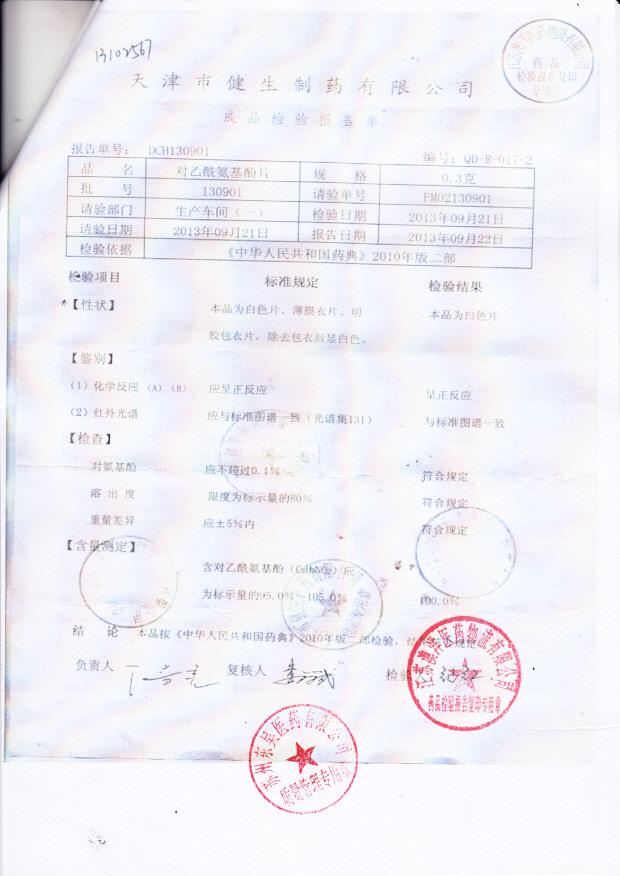 13102567
天津市健生制药有限公司
成品检验报告单
药品
检验报告复印
专用章
报告单号： DCH130901 编号：QD-R-017-2
品 名 对乙酰氨基酚片 规 格 0.3克
批 号 130901 请验单号 FM02130901
请验部门 生产车间（一） 检验日期 2013年09月21日
请验日期 2013年09月21日 报告日期 2013年09月22日
检验依据 《中华人民共和国药典》2010年版二部
检验项目 标准规定 检验结果
【性状】 本品为白色片、薄膜衣片、明 本品为白色片
胶包衣片，除去包衣后显白色。
【鉴别】
（1）化学反应（A）（B） 应呈正反应 呈正反应
（2）红外光谱 应与标准图谱一致（光谱集131） 与标准图谱一致
【检查】
对氨基酚 应不超过0.1% 符合规定
溶出度 限度为标示量的80% 符合规定
重量差异 应±5%内 符合规定
【含量测定】
含对乙酰氨基酚（C₈H₉NO₂）应
为标示量的95.0% 105.0% 100.0%
结 论 本品按《中华人民共和国药典》2010年版二部检验，规定
负责人 复核人 检验人
江苏澳洋医药物流有限公司
药品检验报告复印专用章
苏州东吴医药有限公司
质量管理专用章